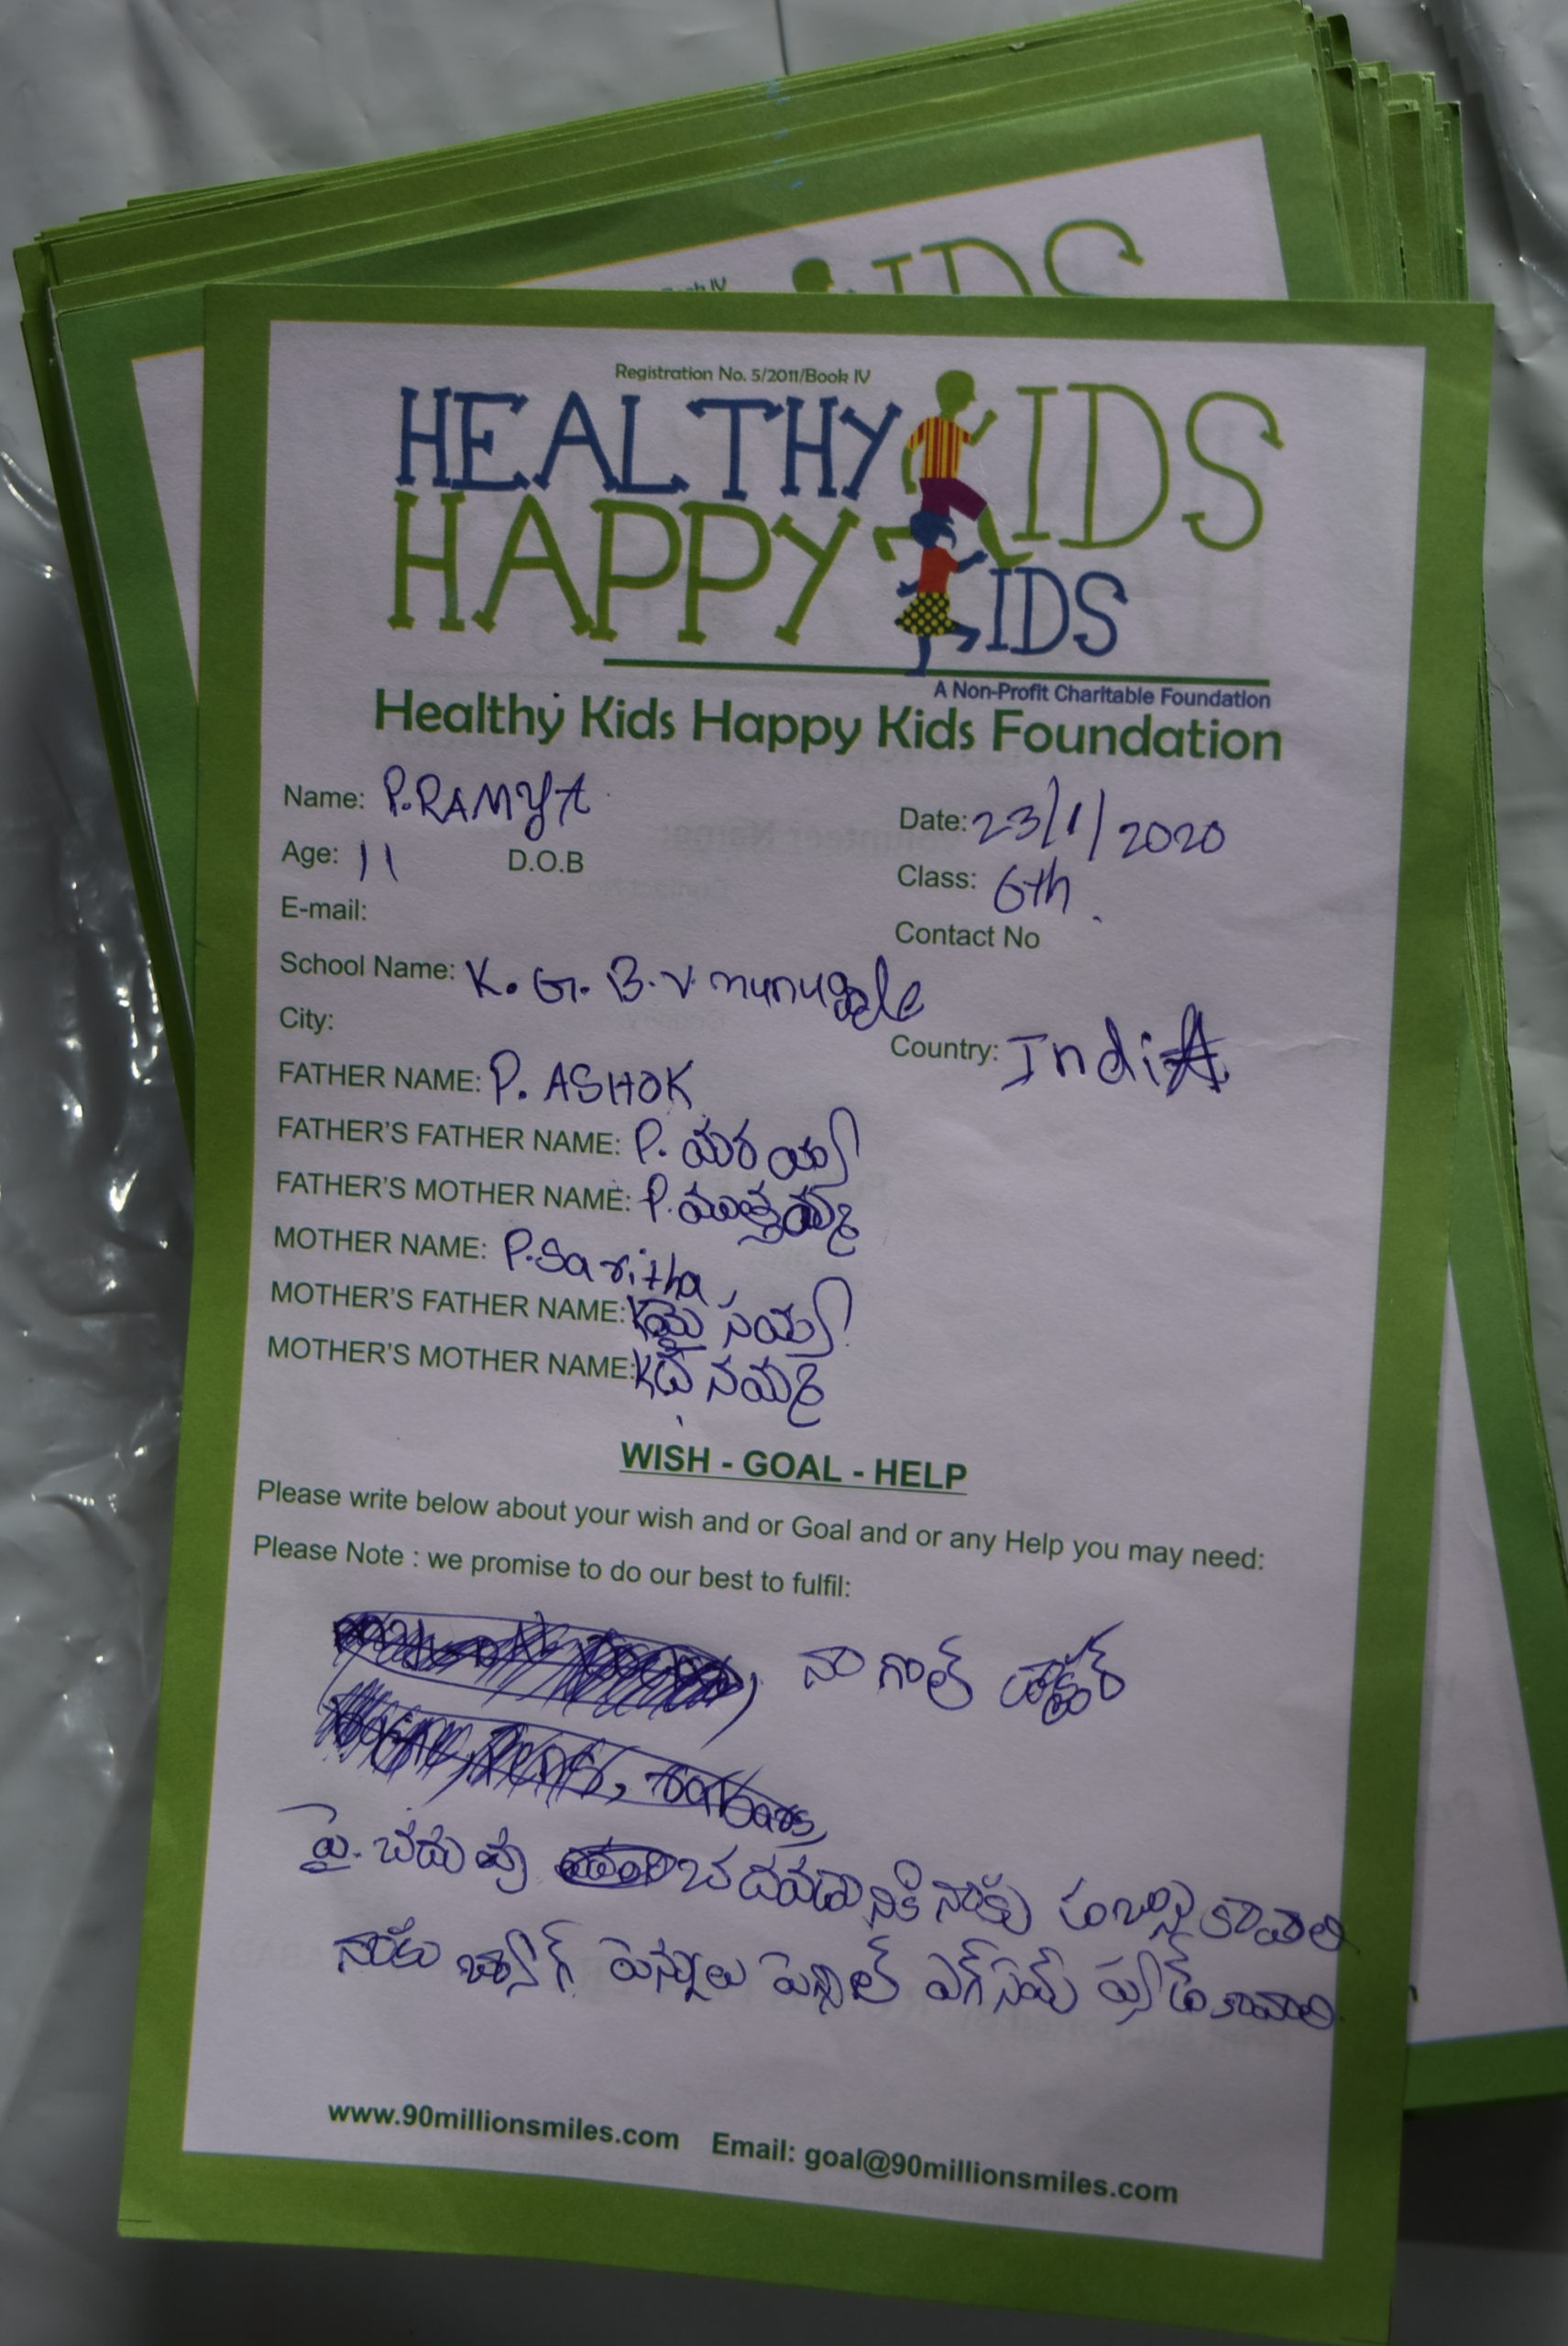 Registration No. 5/2011/Book IV
HEALTHY KIDS
HAPPY KIDS
A Non-Profit Charitable Foundation
Healthy Kids Happy Kids Foundation
Name: P.RAMYA
Date: 23/1/2020
Age: 11 D.O.B
Class: 6th.
E-mail:
Contact No
School Name: K. G. B. V. munugale
City:
Country: IndiA
FATHER NAME: P. ASHOK
FATHER'S FATHER NAME: P.
FATHER'S MOTHER NAME: P. ముత్తమ్మ
MOTHER NAME: P.Saritha
MOTHER'S FATHER NAME: K మైసయ్య
MOTHER'S MOTHER NAME: K
WISH - GOAL - HELP
Please write below about your wish and or Goal and or any Help you may need:
Please Note : we promise to do our best to fulfil:
నా గొల్ డాక్టర్
పై. చదువు చదవడానికి నాకు కావాలి
నాకు బ్యాగ్ పెన్నులు పెన్సిల్ ఎగ్సమ్ ప్యాడ్ కావాలి
www.90millionsmiles.com Email: goal@90millionsmiles.com